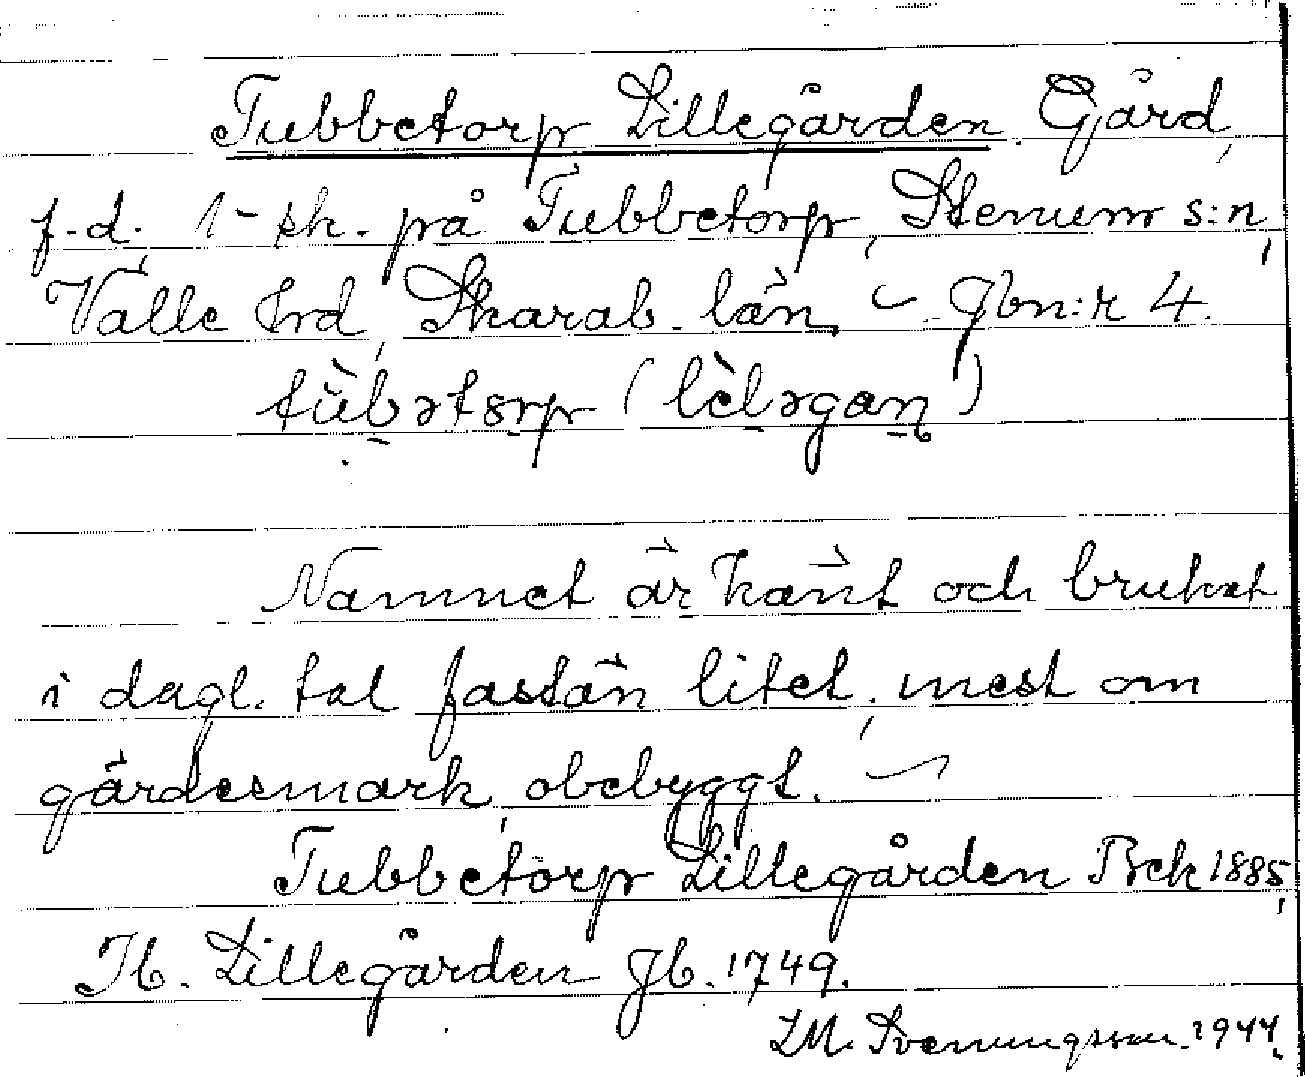 Tubbetorp Lillegården Gård,
f.d. 1-sk. på Tubbetorp, Stenum s:n,
Valle hrd, Skarab. län, Jbn:r 4.
tùb̤ətorp (lèləgan)
Namnet är känt och brukat
i dagl. tal fastän litet, mest om
gärdesmark, obebyggt.
Tubbetorp Lillegården Bek 1885,
Tb. Lillegården Jb. 1749.
LM. Svenungsson 1944.